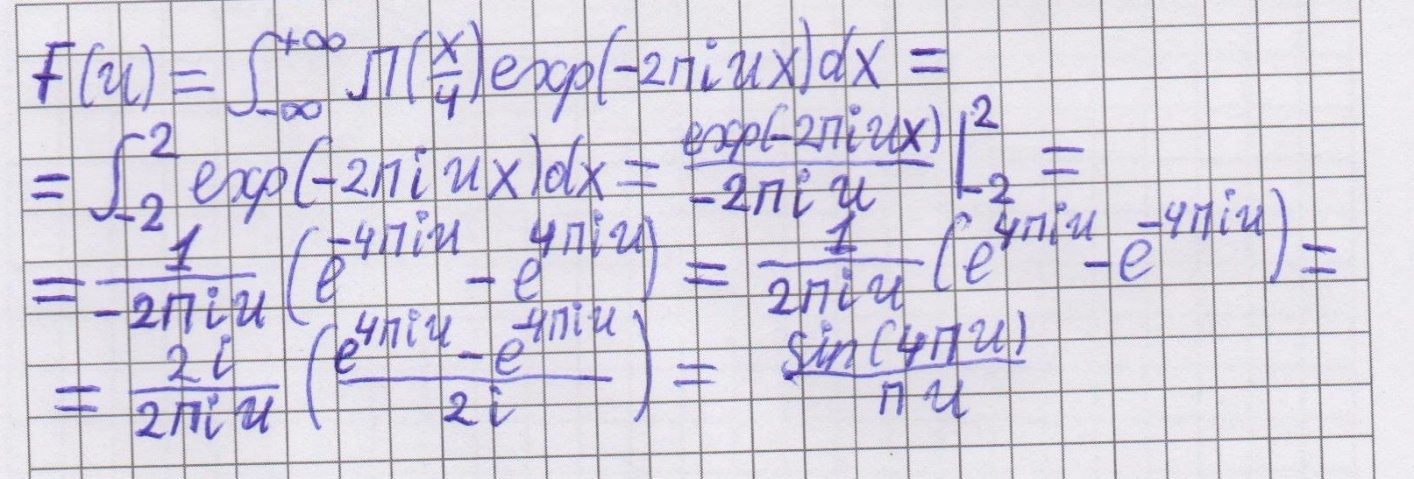 F(u) = ∫_{-∞}^{+∞} Π(x/4) exp(-2πiux)dx =
= ∫_{-2}^{2} exp(-2πiux)dx = exp(-2πiux)/(-2πiu) |_{-2}^{2} =
= 1/(-2πiu) (e^{-4πiu} - e^{4πiu}) = 1/(2πiu) (e^{4πiu} - e^{-4πiu}) =
= 2i/(2πiu) ((e^{4πiu} - e^{-4πiu})/(2i)) = sin(4πu)/(πu)